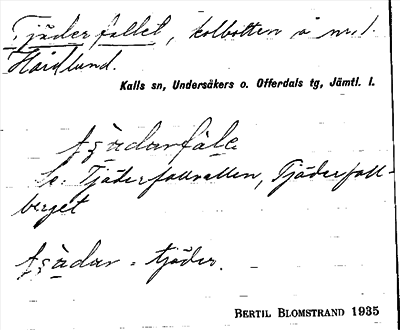 Tjäderfallet, kolbotten å nr. 1.
Hårdlund.
Kalls sn, Undersåkers o. Offerdals tg, Jämtl. l.
Se: Tjäderfallvallen, Tjäderfall-
berget
= tjäder.
BERTIL BLOMSTRAND 1935